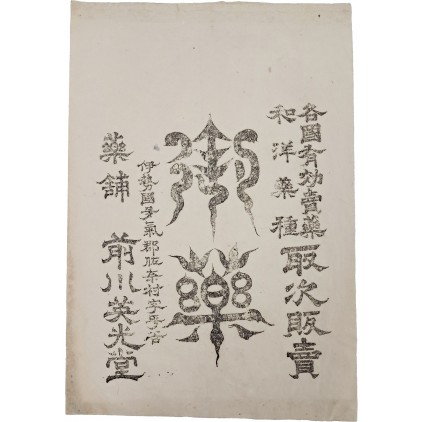 各國有効賣藥
和洋藥種
取次販賣
御藥
伊勢國多氣郡佐奈村字平谷
藥舖
前川英光堂